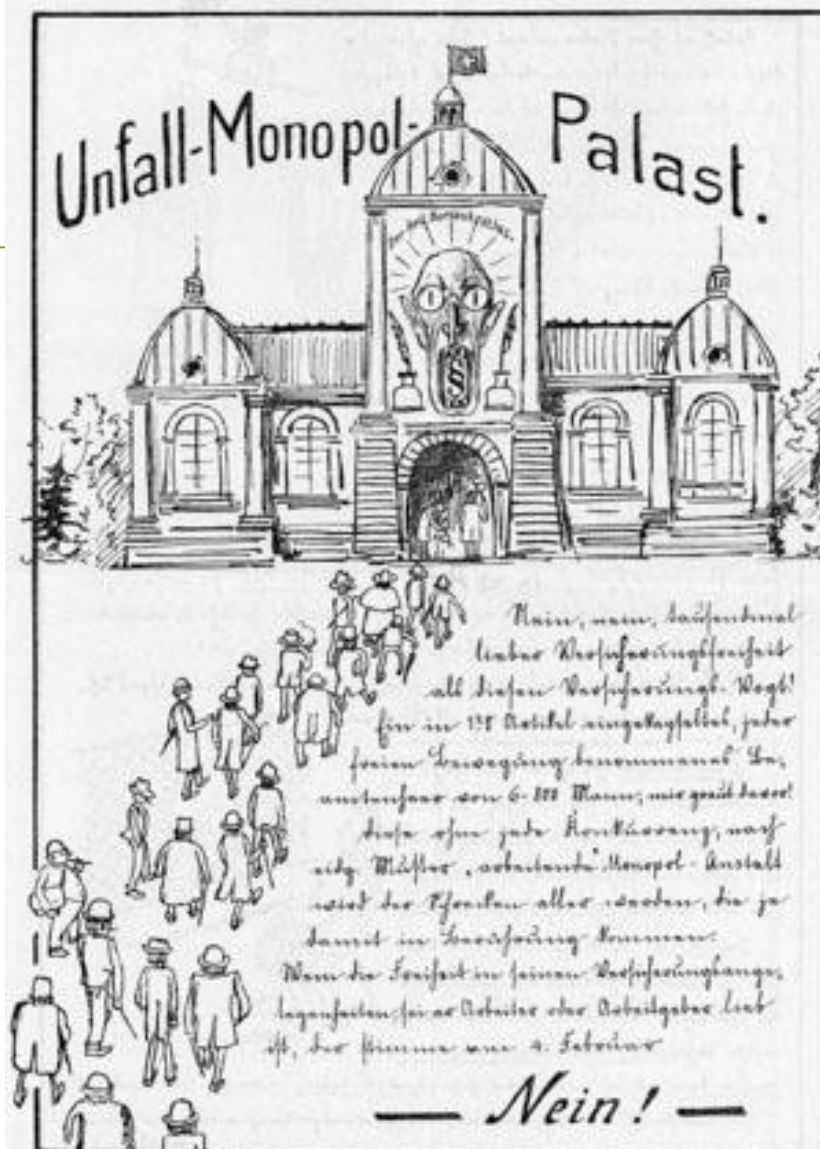 Unfall-Monopol-Palast.
Nein, nein, tausendmal
lieber Versicherungsfreiheit
als diesen Versicherungs-Vogt!
Ein in 138 Artikel eingekapseltes, jeder
freien Bewegung benommenes Be-
amtenheer von 6-800 Mann, mir graut davor!
Diese ohne jede Konkurrenz, nach
eidg. Muster „arbeitende“ Monopol-Anstalt
wird der Schrecken aller werden, die je
damit in Berührung kommen.
Wem die Freiheit in seinen Versicherungsange-
legenheiten, sei er Arbeiter oder Arbeitgeber lieb
ist, der stimme am 4. Februar
— Nein! —
§